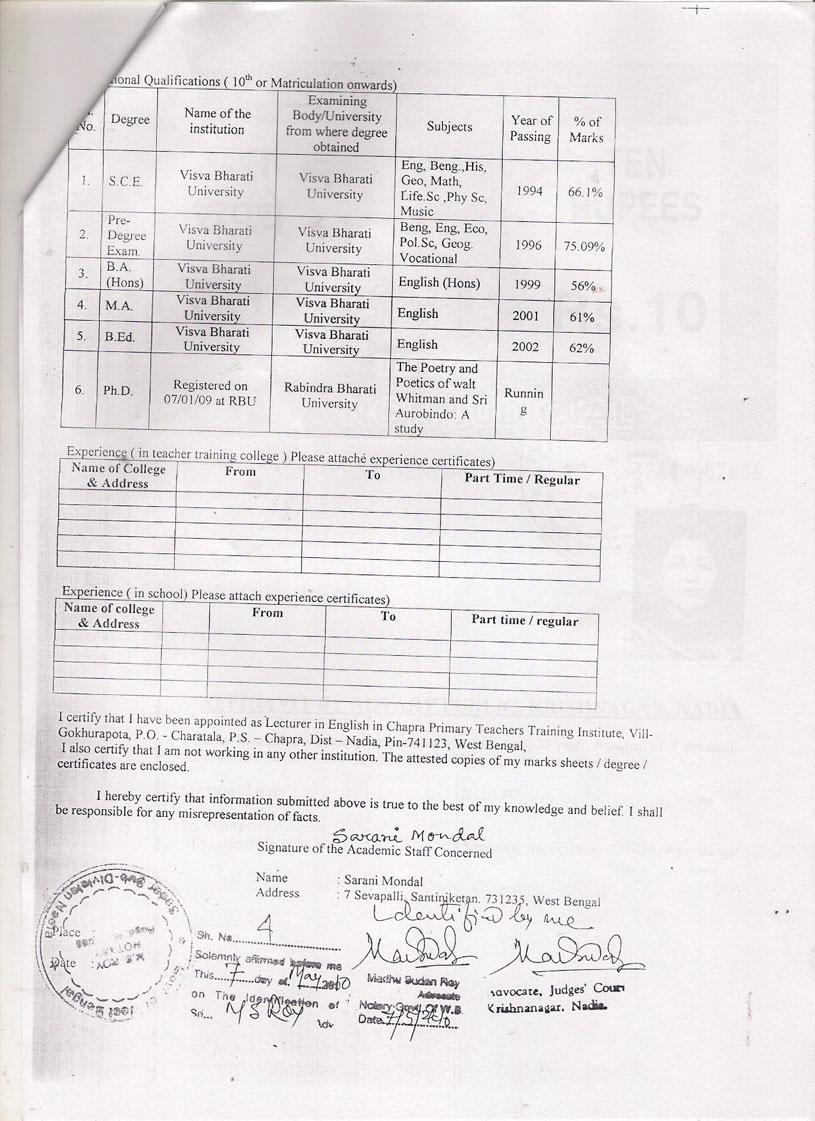 ional Qualifications ( 10th or Matriculation onwards)
No. Degree Name of the institution Examining Body/University from where degree obtained Subjects Year of Passing % of Marks
1. S.C.E. Visva Bharati University Visva Bharati University Eng, Beng.,His, Geo, Math, Life.Sc ,Phy Sc, Music 1994 66.1%
2. Pre-Degree Exam. Visva Bharati University Visva Bharati University Beng, Eng, Eco, Pol.Sc, Geog. Vocational 1996 75.09%
3. B.A. (Hons) Visva Bharati University Visva Bharati University English (Hons) 1999 56%
4. M.A. Visva Bharati University Visva Bharati University English 2001 61%
5. B.Ed. Visva Bharati University Visva Bharati University English 2002 62%
6. Ph.D. Registered on 07/01/09 at RBU Rabindra Bharati University The Poetry and Poetics of walt Whitman and Sri Aurobindo: A study Running
Experience ( in teacher training college ) Please attaché experience certificates)
Name of College & Address From To Part Time / Regular
Experience ( in school) Please attach experience certificates)
Name of college & Address From To Part time / regular
I certify that I have been appointed as Lecturer in English in Chapra Primary Teachers Training Institute, Vill-
Gokhurapota, P.O. - Charatala, P.S. – Chapra, Dist – Nadia, Pin-741123, West Bengal,
I also certify that I am not working in any other institution. The attested copies of my marks sheets / degree /
certificates are enclosed.
I hereby certify that information submitted above is true to the best of my knowledge and belief. I shall
be responsible for any misrepresentation of facts.
Sarani Mondal
Signature of the Academic Staff Concerned
Name : Sarani Mondal
Address : 7 Sevapalli, Santiniketan. 731235, West Bengal
Identified by me
Place :
Date :
Sh. No. 4
Solemnly affirmed before me
This 7 day of May 2010
on The Identification of
Sri... M S Roy
Adv
Madhu Sudan Roy
Advocate
Notary Govt. Of W.B.
Date 7/5/2010
Advocate, Judges' Court
Krishnanagar, Nadia.